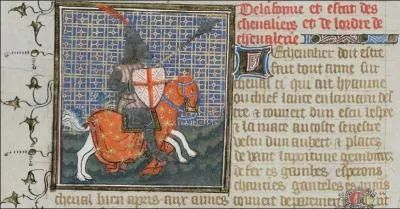 De la forme et estat des
chevaliers et de lordre de
chevalerie
E chevalier doit estre
fait tout arme sur
cheval
ou chief lance en la main
et couvert dun escu lespee
et la mace au coste senestre
vestu dun aubert a plates
devant la poitrine
de fer es gambes esperons
chauciés ganteles es mains
cheval bien apris aux armes couvert